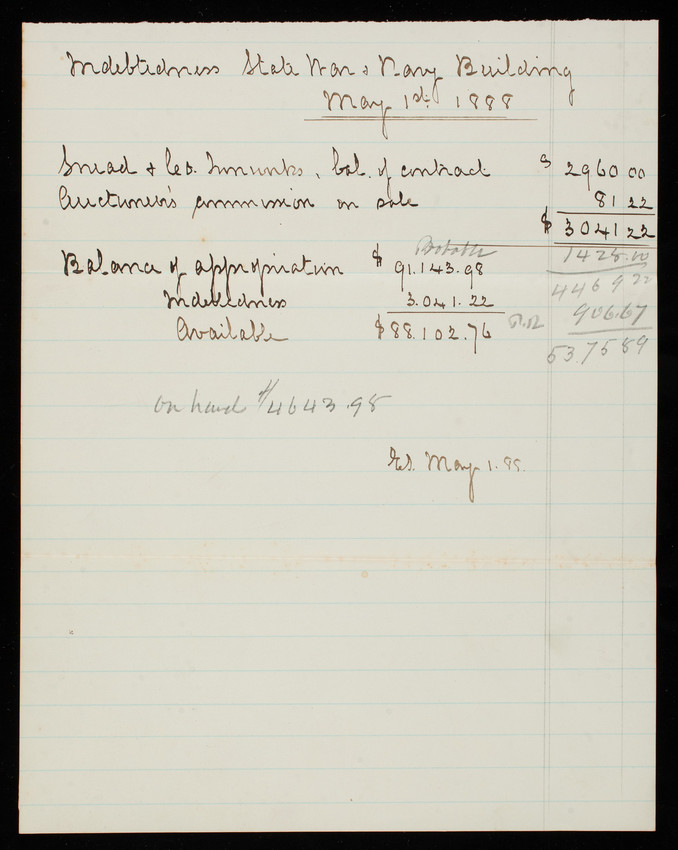 Indebtedness State War & Navy Building
May 1st 1888
Snead & Co. Ironworks, bal. of contract $ 2960 00
Auctioneer's commission on sale 81 22
$ 3041 22
Probable 1428.00
Balance of appropriation $ 91.143.98
4469 22
Indebtedness 3.041.22
906.67
Available $88.102.76
53.7589
on hand $4643.98
May 1. 88.